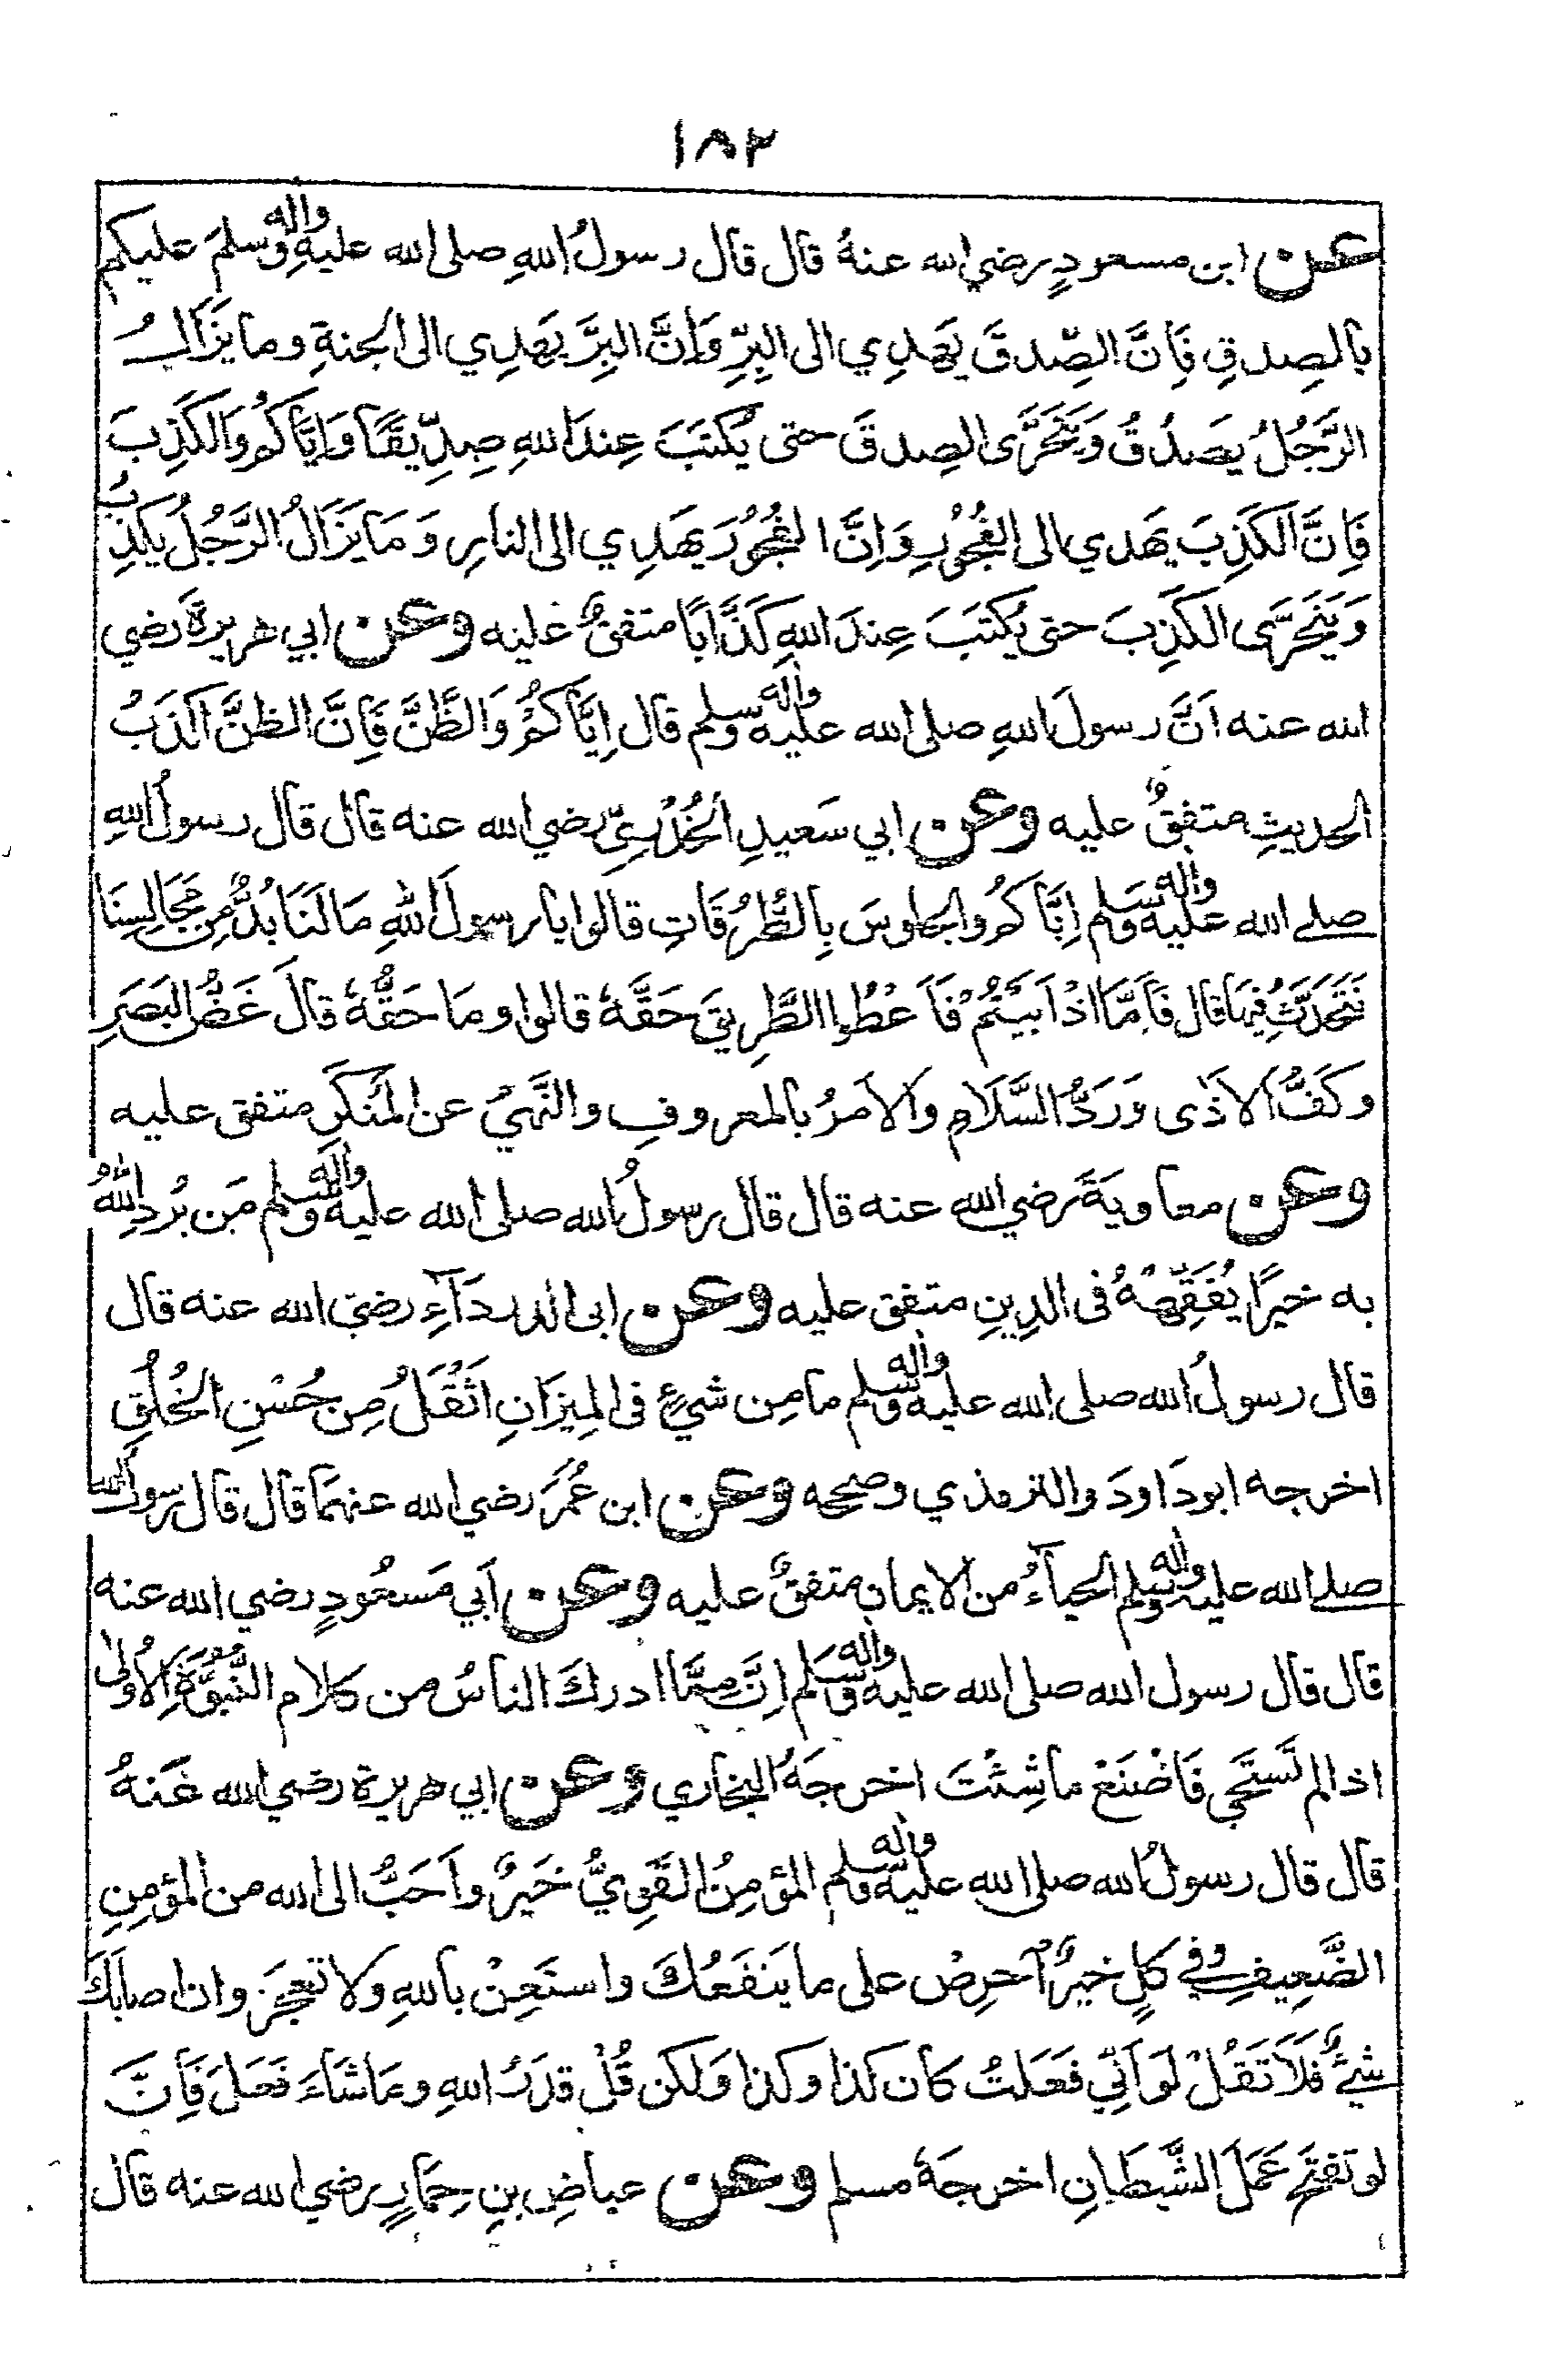 ١٨٢
عن ابن مسعودٍ رضي الله عنهُ قال قال رسولُ اللهِ صلى الله عليهِ واله وسلمَ عليكم
بالصِدقِ فَاِنَّ الصِّدقَ يَهدِي الى البِرِّ وَاِنَّ البِرَّ يَهدِي الى الجنةِ وما يزَالُ
الرَّجُلُ يصَدُقُ وَيَتَحَرَّى الصِدقَ حتى يُكتَبَ عِندَ اللهِ صِدِّيقًا وَاِيَّاكُم وَالكَذِبَ
فَاِنَّ الكَذِبَ يَهدي الى الفُجُوْرِ وَاِنَّ الفُجُوْرَ يَهدِي الى النارِ وَمَا يَزَالُ الرَّجُلُ يَكذِبُ
وَيَتَحَرَّى الكَذِبَ حتى يُكتَبَ عِندَ اللهِ كَذَّابًا متفقٌ عليه وعن ابي هريرةَ رضي
الله عنه اَنَّ رسولَ اللهِ صلى الله عليه واله وسلم قال اِيَّاكُمْ وَالظَّنَّ فَاِنَّ الظنَّ اكذَبُ
الحديثِ متفقٌ عليه وعن ابي سَعيدِ الخُدْرِيِّ رضي الله عنه قال قال رسولُ اللهِ
صلى الله عليه واله وسلم اِيَّاكُم والجلوسَ بِالطُّرُقَاتِ قالوا يا رسولَ اللهِ مَا لَنَا بُدٌّ مِن مَجَالِسِنَا
نَتَحَدَّثُ فِيهَا قال فَاَمَّا اذْ اَبَيْتُمْ فَاَعْطُوا الطَّرِيقَ حَقَّهُ قالوا ومَا حَقُّهُ قالَ غَضُّ البَصَرِ
وكَفُّ الاذَى وَرَدُّ السَّلَامِ والامرُ بالمعروفِ والنَّهيُ عن المُنكَرِ متفق عليه
وعن معاويةَ رضي الله عنه قال قال رسولُ الله صلى الله عليه واله وسلم مَن يُردِ اللهُ
به خيرًا يُفَقِّههُ فى الدِينِ متفق عليه وعن ابى الدرداۤءِ رضي الله عنه قال
قال رسولُ الله صلى الله عليه واله وسلم ما مِن شيءٍ فى المِيزَانِ اثقَلُ مِن حُسْنِ الخُلُقِ
اخرجه ابودَاودَ والترمذي وصححه وعن ابن عُمَرَ رضي الله عنهمَا قال قال رسولُ الله
صلى الله عليه واله وسلم الحياۤءُ من الايمانِ متفقٌ عليه وعن اَبي مَسعُودٍ رضي الله عنه
قال قال رسول الله صلى الله عليه واله وسلم اِنَّ مِمَّا ادركَ الناسُ من كلام النُّبُوَّةِ الاُولىٰ
اذا لم تَستَحي فَاصْنَعْ ما شِئْتَ اخرجَهُ البخاري وعن ابي هريرة رضي الله عَنهُ
قال قال رسولُ الله صلى الله عليه واله وسلم المؤمِنُ القَوِيُّ خَيرٌ واَحَبُّ الى الله من المؤمِنِ
الضَّعِيفِ وفي كلٍ خيرٌ اَحرِصْ على ما يَنفَعُكَ واستَعِنْ باللهِ ولا تعجَز وان اصابَكَ
شيءٌ فلَا تَقُلْ لَو اَنّي فَعَلتُ كان كذا وكذا وَلكن قُلْ قدَرُ اللهِ وما شَاءَ فَعَلَ فَاِنَّ
لو تفتَح عَمَلَ الشَّيطَانِ اخرجَهُ مسلم وعن عياضِ بنِ حِمَارٍ رضي الله عنه قال